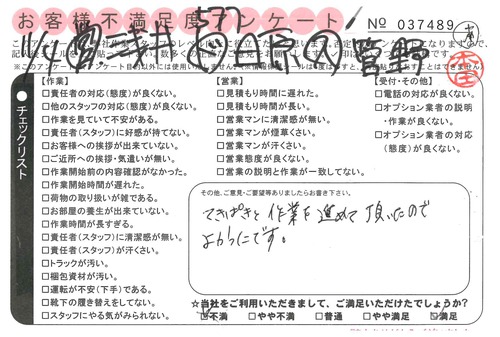 お客様不満足度アンケート
No 037489
【作業】
□責任者の対応(態度)が良くない。
□他のスタッフの対応(態度)が良くない。
□作業を見ていて不安がある。
□責任者(スタッフ)に好感が持てない。
□お客様への挨拶が出来ていない。
□ご近所への挨拶・気遣いが無い。
□作業開始前の内容確認がなかった。
□作業開始時間が遅れた。
□荷物の取り扱いが雑である。
□お部屋の養生が出来ていない。
□作業時間が長すぎる。
□責任者(スタッフ)に清潔感が無い。
□責任者(スタッフ)が汗くさい。
□トラックが汚い。
□梱包資材が汚い。
□運転が不安(下手)である。
□靴下の履き替えをしてない。
□スタッフにやる気がみられない。
【営業】
□見積もり時間に遅れた。
□見積もり時間が長い。
□営業マンに清潔感が無い。
□営業マンが煙草くさい。
□営業マンが汗くさい。
□営業態度が良くない。
□営業の説明と作業が一致してない。
【受付・その他】
□電話の対応が良くない。
□オプション業者の説明
・作業が良くない。
□オプション業者の対応
(態度)が良くない。
●チェックリスト
その他、ご意見・ご要望等ありましたらお書き下さい。
てきぱきと作業を進めて頂いたので
よかったです。
☆当社をご利用いただきまして、ご満足いただけたでしょうか?
□不満 □やや不満 □普通 □やや満足 □満足